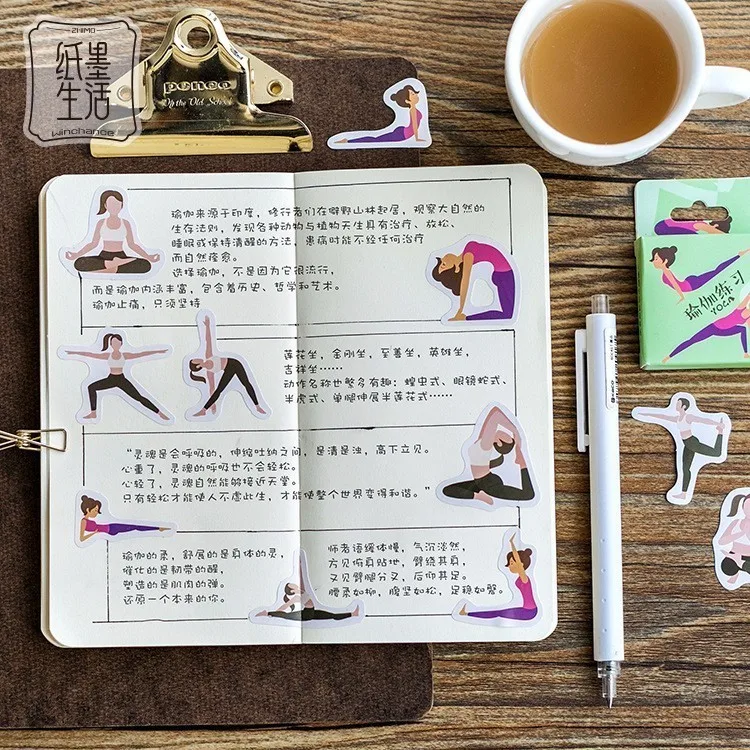 ZHIMO
纸墨
生活
winchance
penco
Up the Old School
瑜伽来源于印度，修行者们在僻野山林起居，观察大自然的
生存法则，发现各种动物与植物天生具有治疗、放松、
睡眠或保持清醒的方法，患病时能不经任何治疗
而自然痊愈。
选择瑜伽，不是因为它很流行，
而是瑜伽内涵丰富，包含着历史、哲学和艺术。
瑜伽止痛，只须坚持
莲花坐，金刚坐，至善坐，英雄坐，
吉祥坐……
动作名称也繁多有趣：蝗虫式、眼镜蛇式、
半虎式、单腿伸展半莲花式……
“灵魂是会呼吸的，伸缩吐纳之间，是清是浊，高下立见。
心重了，灵魂的呼吸也不会轻松。
心轻了，灵魂自然能够接近天堂。
只有轻松才能使人不虚此生，才能使整个世界变得和谐。”
瑜伽的柔，舒展的是身体的灵，
催化的是韧带的醒，
塑造的是肌肉的弹。
还原一个本来的你。
师者语缓体慢，气沉淡然，
方见俯身贴地，臂绕其身，
又见臂腿分叉，后仰其足。
腰柔如柳，腹坚如松，足稳如磐。
瑜伽练习
YOGA